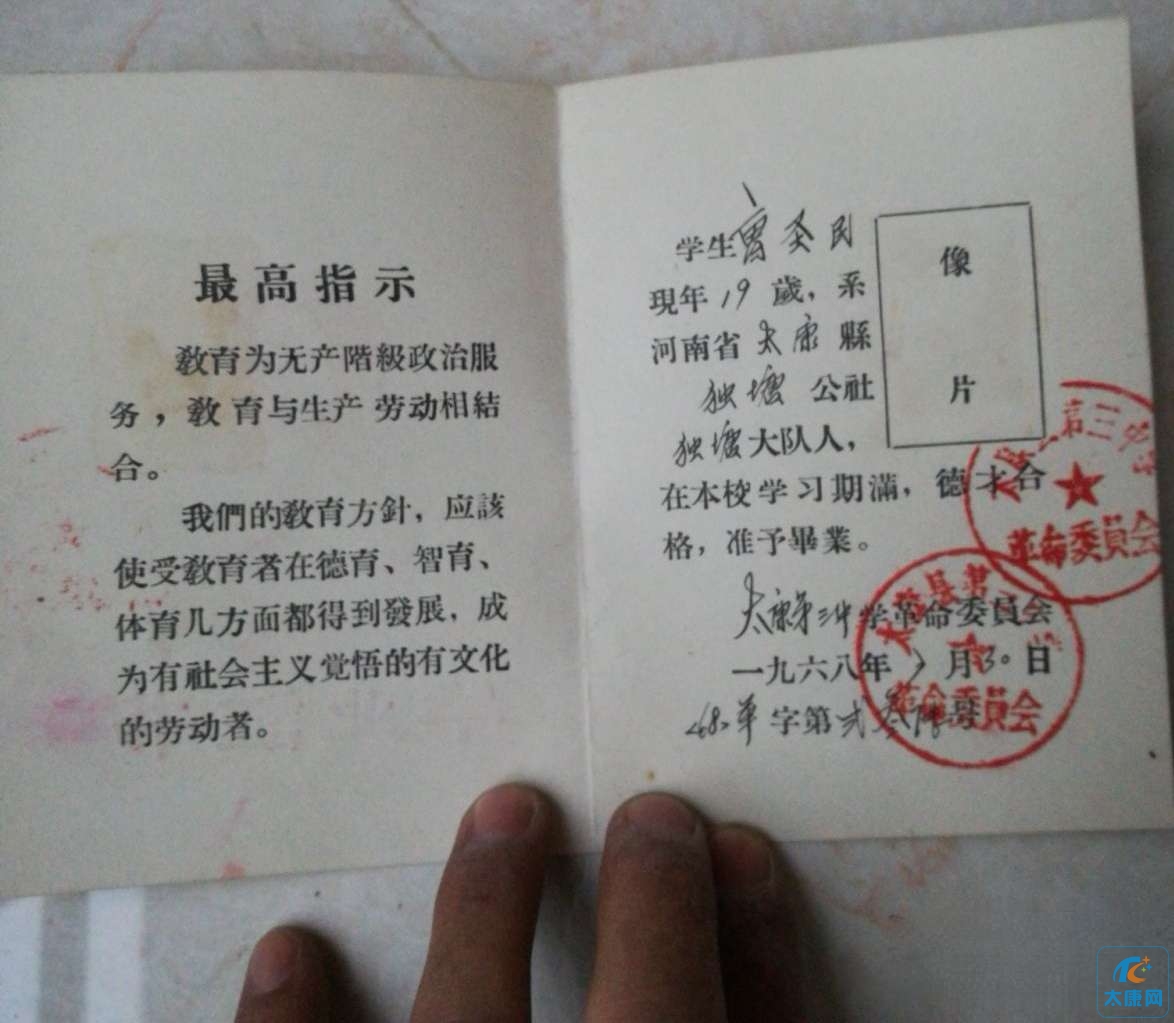 最高指示
教育为无产階級政治服
务，教育与生产劳动相結
合。
我們的教育方針，应該
使受教育者在德育、智育、
体育几方面都得到發展，成
为有社会主义觉悟的有文化
的劳动者。
学生曹圣民
現年19歲，系
河南省太康縣
独塘公社
独塘大队人，
在本校学习期滿，德才合
格，准予畢業。
太康第三中学革命委員会
一九六八年 月30日
68革字第弐叁 号
像
片
第三
革命委員会
革命委員会
太康网